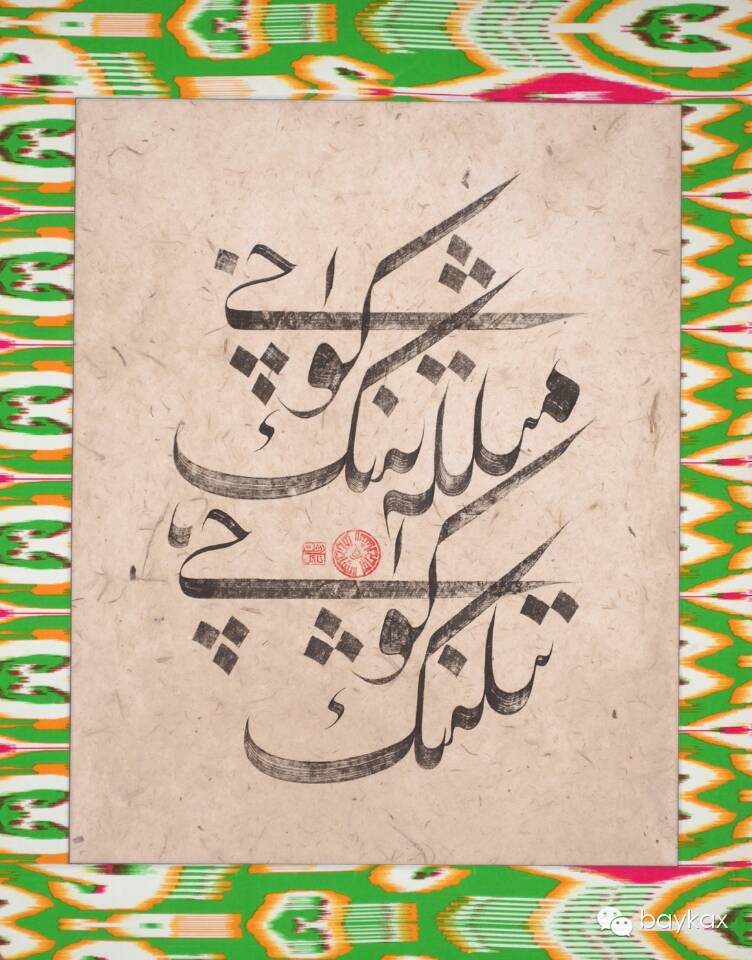 مىللەتنىڭ كۈچى
تىلنىڭ كۈچى
baykax